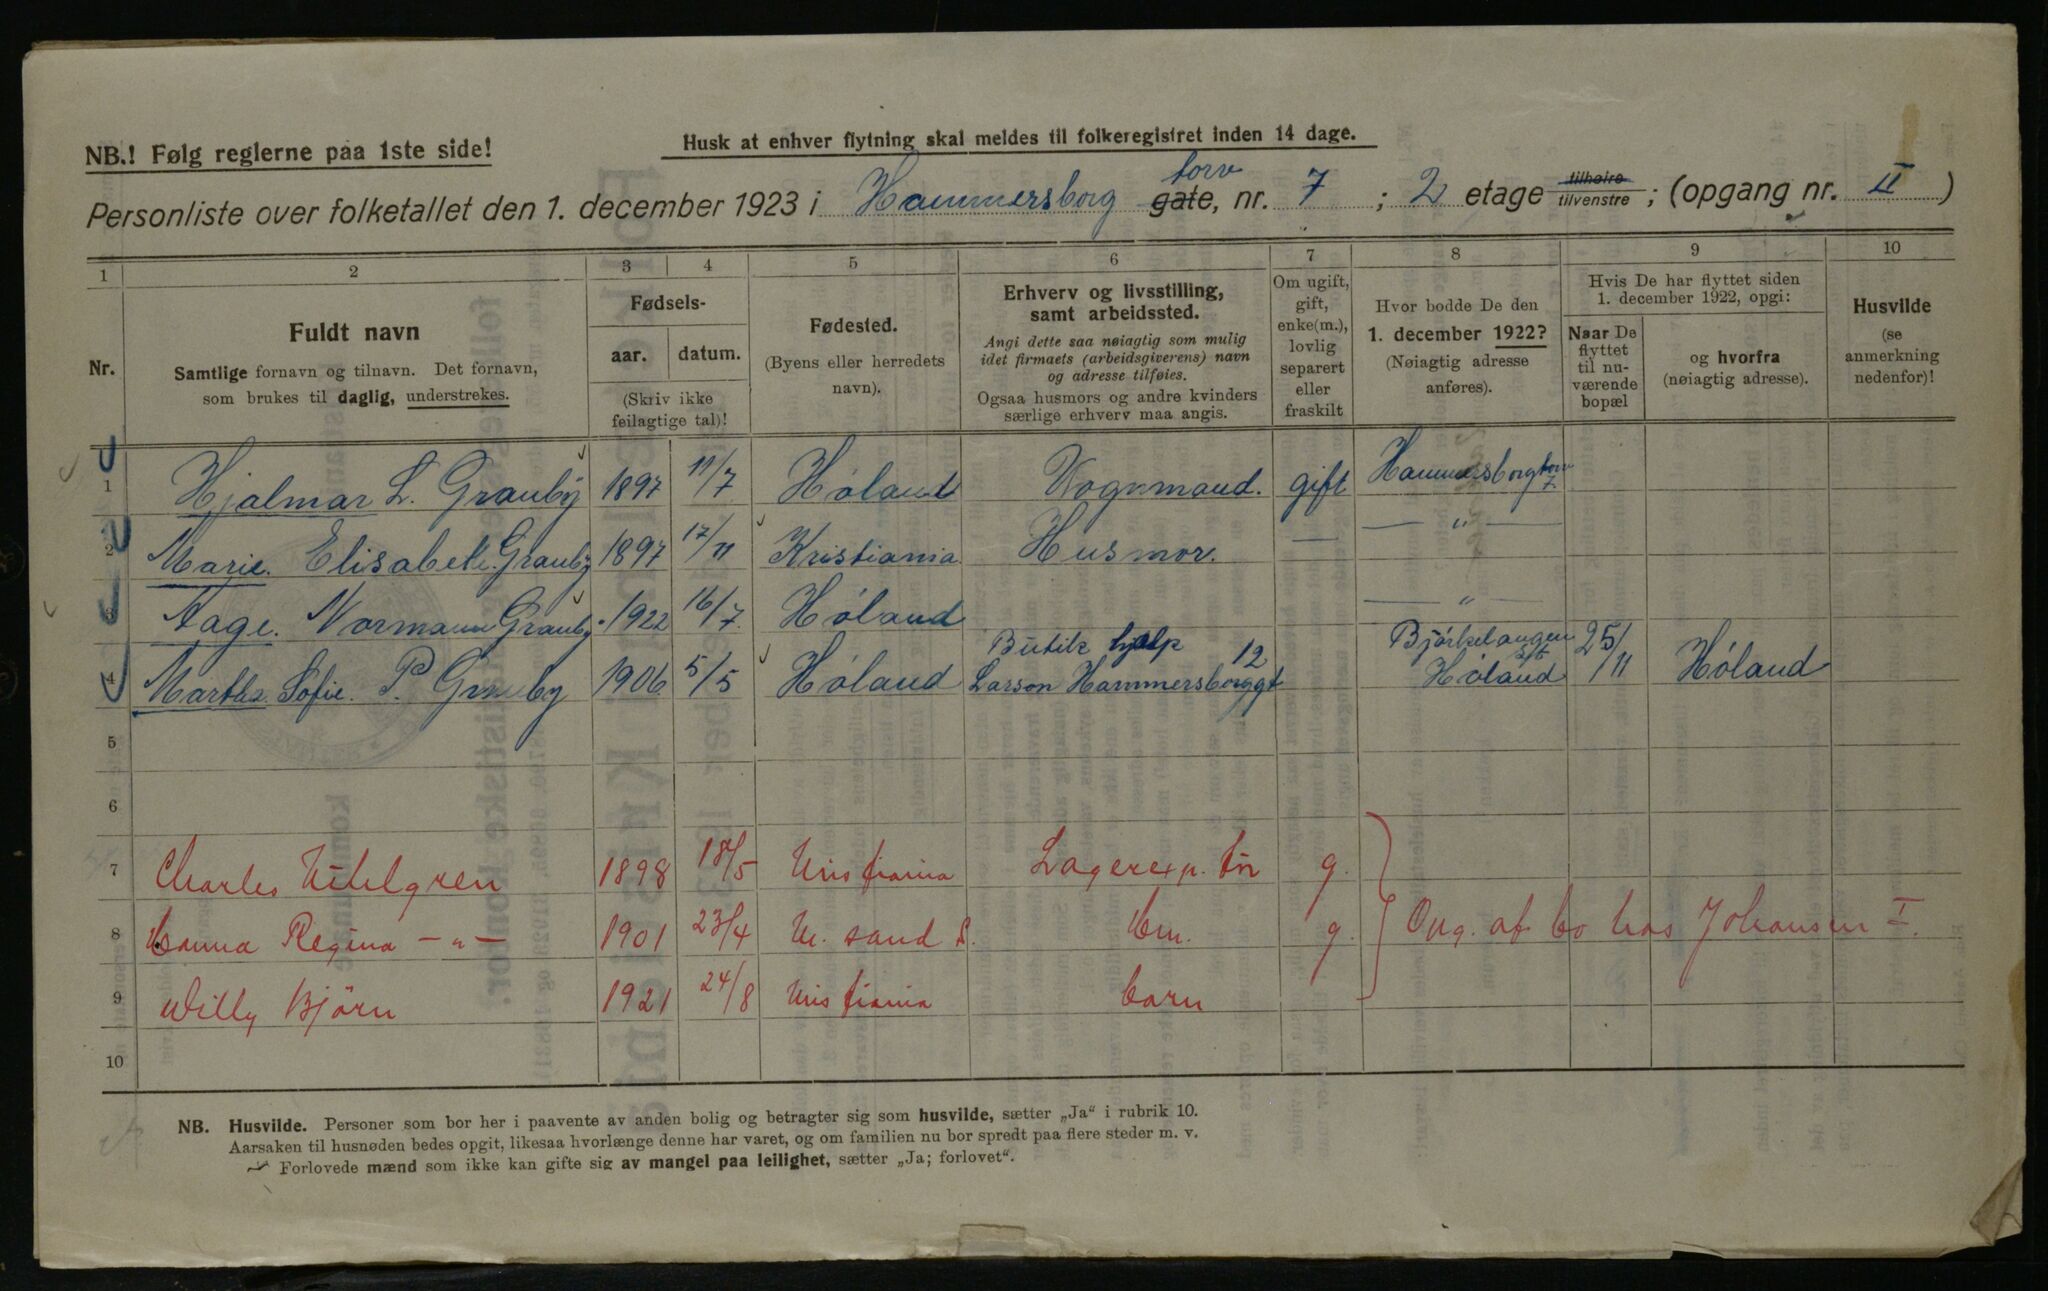 NB.! Følg reglerne paa 1ste side!
Husk at enhver flytning skal meldes til folkeregistret inden 14 dage.
torv
Personliste over folketallet den 1. december 1923 i Hammersborg gate, nr. 7 ; 2 etage tilhøire tilvenstre ; (opgang nr. II )
1 2 3 4 5 6 7 8 9 10
Nr.
Fuldt navn
Samtlige fornavn og tilnavn. Det fornavn,
som brukes til daglig, understrekes.
Fødsels-
aar. datum.
(Skriv ikke
feilagtige tal)!
Fødested.
(Byens eller herredets
navn).
Erhverv og livsstilling,
samt arbeidssted.
Angi dette saa nøiagtig som mulig
idet firmaets (arbeidsgiverens) navn
og adresse tilføies.
Ogsaa husmors og andre kvinders
særlige erhverv maa angis.
Om ugift,
gift,
enke(m.),
lovlig
separert
eller
fraskilt
Hvor bodde De den
1. december 1922?
(Nøiagtig adresse
anføres).
Hvis De har flyttet siden
1. december 1922, opgi:
Naar De
flyttet
til nu-
værende
bopæl
og hvorfra
(nøiagtig adresse).
Husvilde
(se
anmerkning
nedenfor)!
1 Hjalmar L. Grauby 1897 11/7 Høland Vognmand. gift Hammersborgtorv 7
2 Marie. Elisabet. Grauby 1897 17/11 Kristiania Husmor. — — " —
3 Aage. Normann Grauby. 1922 16/7. Høland — " —
4 Martha Sofie. P. Grauby 1906 5/5 Høland Butik hjælp Larson Hammersborggt 12 Bjørkelangen Høland 25/11 Høland
5
6
7 Charles Uthlgren 1898 18/5 Kristiania Lagerexp. g.
8 Hanna Regina — " — 1901 23/4 Kr. sand S. hm. g. Opg. at bo hos Johansen I.
9 Willy Bjørn 1921 24/8 Kristiania barn
10
NB. Husvilde. Personer som bor her i paavente av anden bolig og betragter sig som husvilde, sætter „Ja“ i rubrik 10.
Aarsaken til husnøden bedes opgit, likesaa hvorlænge denne har varet, og om familien nu bor spredt paa flere steder m. v.
Forlovede mænd som ikke kan gifte sig av mangel paa leilighet, sætter „Ja; forlovet“.